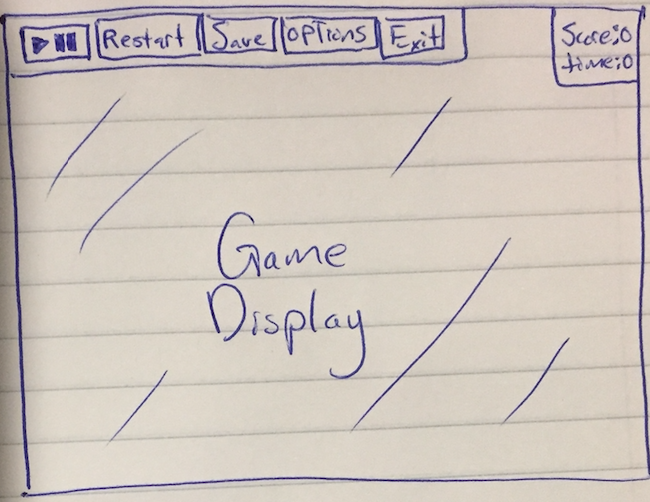 Restart Save Options Exit
Score:0
time:0
Game
Display